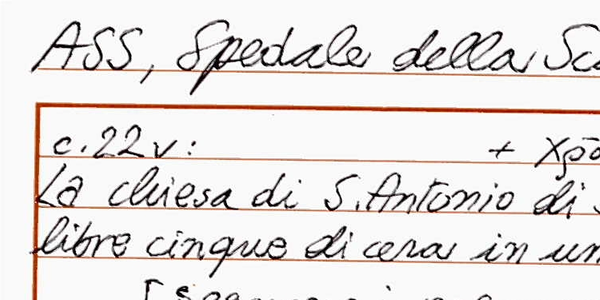 ASS, Spedale della
c.22v: + Xpō
La chiesa di S. Antonio di
libre cinque di cera in un